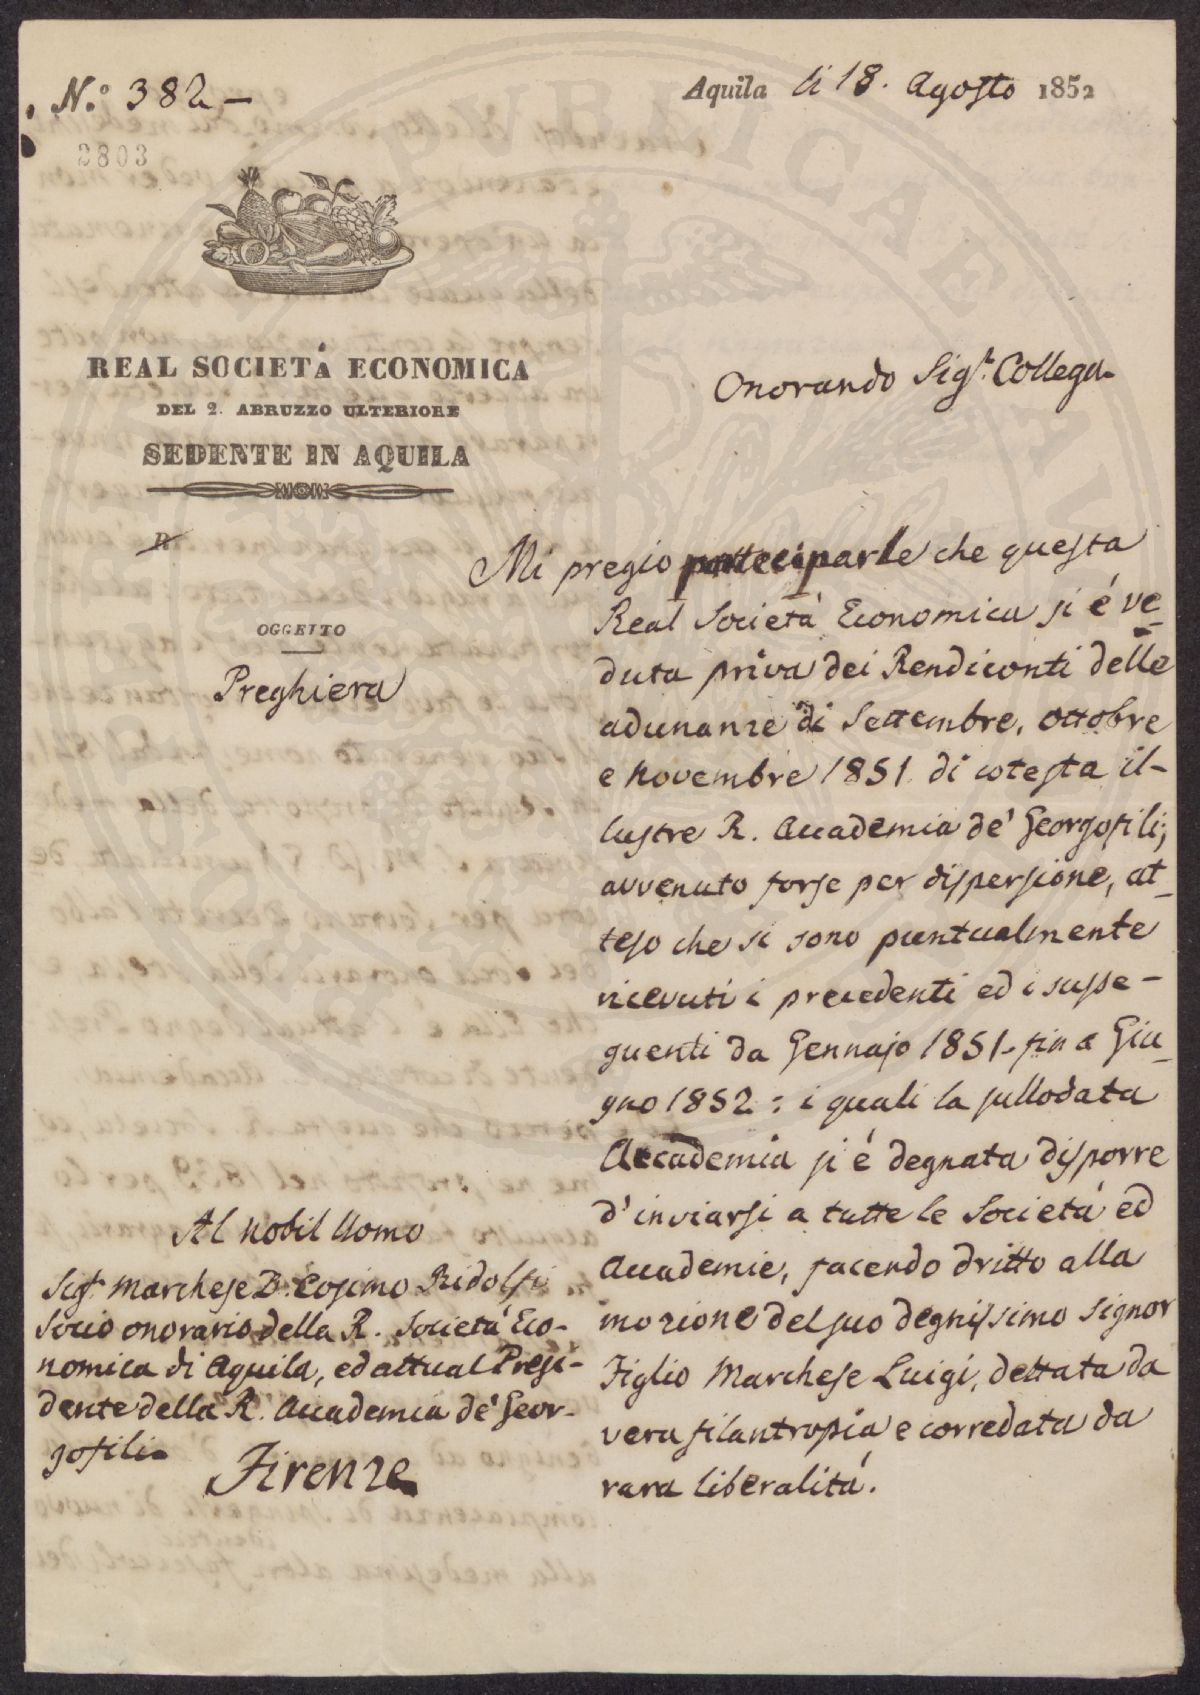 N.° 382 —
Aquila li 18. Agosto 1852
2803
REAL SOCIETÀ ECONOMICA
DEL 2. ABRUZZO ULTERIORE
SEDENTE IN AQUILA
OGGETTO
Preghiera
Onorando Sig.r Collega
Mi pregio parteciparle che questa
Real Società Economica si é ve-
duta priva dei Rendiconti delle
adunanze di Settembre, Ottobre
e Novembre 1851 di cotesta il-
lustre R. Accademia de' Georgofili;
avvenuto forse per dispersione, at-
teso che si sono puntualmente
ricevuti i precedenti ed i susse-
guenti da Gennajo 1851 fin a Giu-
gno 1852: i quali la sullodata
Accademia si é degnata disporre
d'inviarsi a tutte le Società ed
Accademie, facendo dritto alla
mozione del suo degnissimo Signor
Figlio Marchese Luigi, dettata da
vera filantropia e corredata da
rara liberalità.
Al Nobil Uomo
Sig.r Marchese D. Cosimo Ridolfi
Socio onorario della R. Società Eco-
nomica di Aquila, ed attual Presi-
dente della R. Accademia de' Geor-
gofili
Firenze